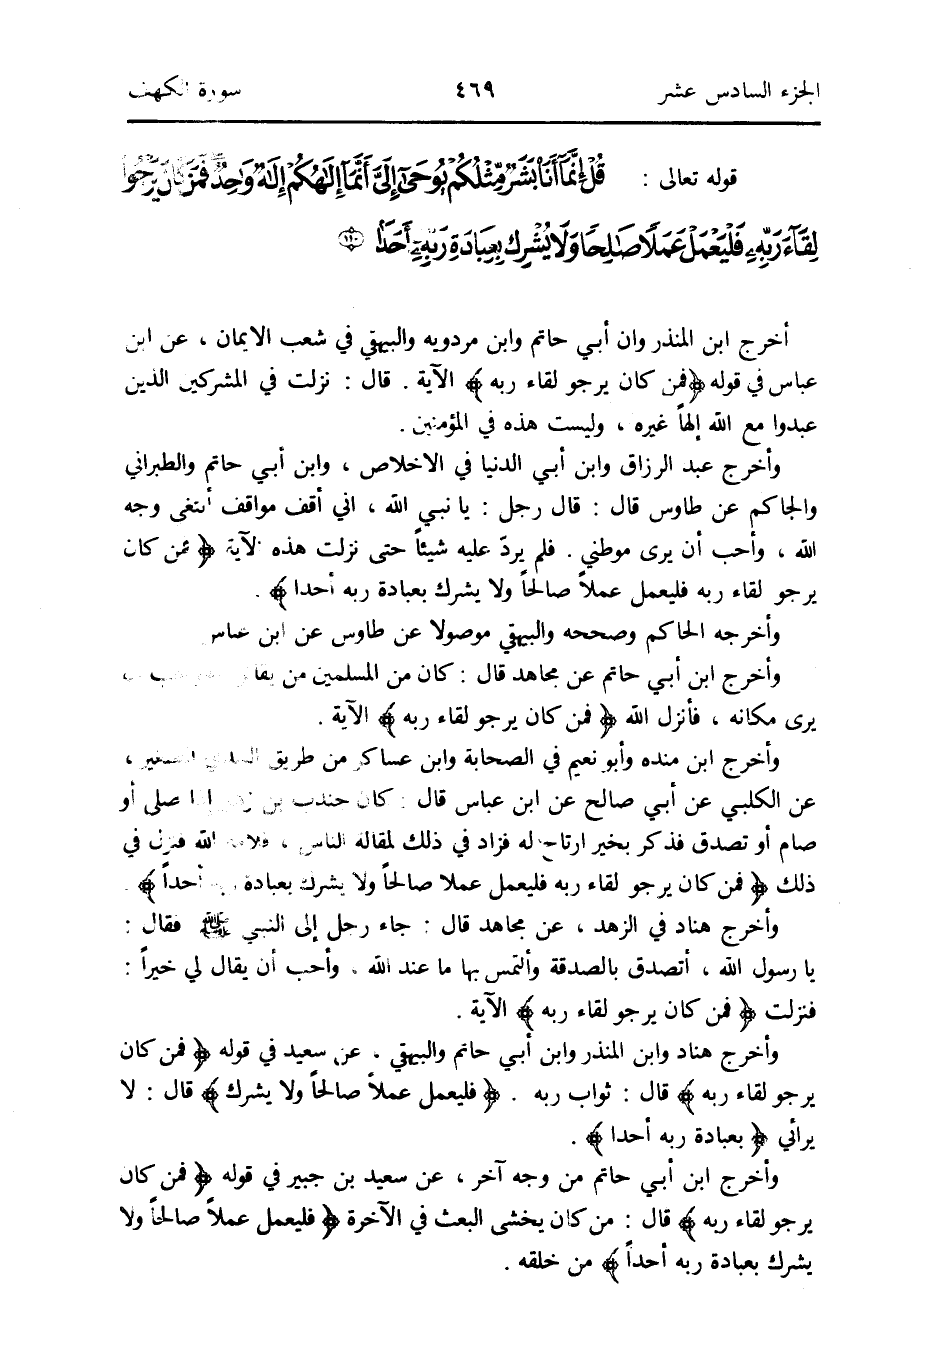 الجزء السادس عشر ٤٦٩ سورة الكهف
قوله تعالى : قُلْ إِنَّمَا أَنَا بَشَرٌ مِّثْلُكُمْ يُوحَىٰ إِلَىَّ أَنَّمَا إِلَٰهُكُمْ إِلَٰهٌ وَٰحِدٌ فَمَن كَانَ يَرْجُوا
لِقَآءَ رَبِّهِۦ فَلْيَعْمَلْ عَمَلًا صَٰلِحًا وَلَا يُشْرِكْ بِعِبَادَةِ رَبِّهِۦٓ أَحَدًا ١١٠
أخرج ابن المنذر وان أبي حاتم وابن مردويه والبيهقي في شعب الايمان ، عن ابن
عباس في قوله ﴿فمن كان يرجو لقاء ربه ﴾ الآية . قال : نزلت في المشركين الذين
عبدوا مع الله إلهاً غيره ، وليست هذه في المؤمنين .
وأخرج عبد الرزاق وابن أبي الدنيا في الاخلاص ، وابن أبي حاتم والطبراني
والحاكم عن طاوس قال : قال رجل : يا نبي الله ، اني أقف مواقف أبتغي وجه
الله ، وأحب أن يرى موطني . فلم يردّ عليه شيئاً حتى نزلت هذه الآية ﴿ فمن كان
يرجو لقاء ربه فليعمل عملاً صالحاً ولا يشرك بعبادة ربه أحدا ﴾ .
وأخرجه الحاكم وصححه والبيهقي موصولا عن طاوس عن ابن عباس
وأخرج ابن أبي حاتم عن مجاهد قال : كان من المسلمين من يقاتل
يرى مكانه ، فأنزل الله ﴿ فمن كان يرجو لقاء ربه ﴾ الآية .
وأخرج ابن منده وأبو نعيم في الصحابة وابن عساكر من طريق السدي الصغير ،
عن الكلبي عن أبي صالح عن ابن عباس قال : كان جندب بن زهير اذا صلى أو
صام أو تصدق فذكر بخير ارتاح له فزاد في ذلك لمقالة الناس ، فلامه الله فنزل في
ذلك ﴿ فمن كان يرجو لقاء ربه فليعمل عملا صالحاً ولا يشرك بعبادة ربه أحداً ﴾ .
وأخرج هناد في الزهد ، عن مجاهد قال : جاء رجل إلى النبي ﷺ فقال :
يا رسول الله ، أتصدق بالصدقة وألتمس بها ما عند الله . وأحب أن يقال لي خيراً :
فنزلت ﴿ فمن كان يرجو لقاء ربه ﴾ الآية .
وأخرج هناد وابن المنذر وابن أبي حاتم والبيهقي . عن سعيد في قوله ﴿ فمن كان
يرجو لقاء ربه ﴾ قال : ثواب ربه . ﴿ فليعمل عملاً صالحاً ولا يشرك ﴾ قال : لا
يرائي ﴿ بعبادة ربه أحدا ﴾ .
وأخرج ابن أبي حاتم من وجه آخر ، عن سعيد بن جبير في قوله ﴿ فمن كان
يرجو لقاء ربه ﴾ قال : من كان يخشى البعث في الآخرة ﴿ فليعمل عملاً صالحاً ولا
يشرك بعبادة ربه أحداً ﴾ من خلقه .